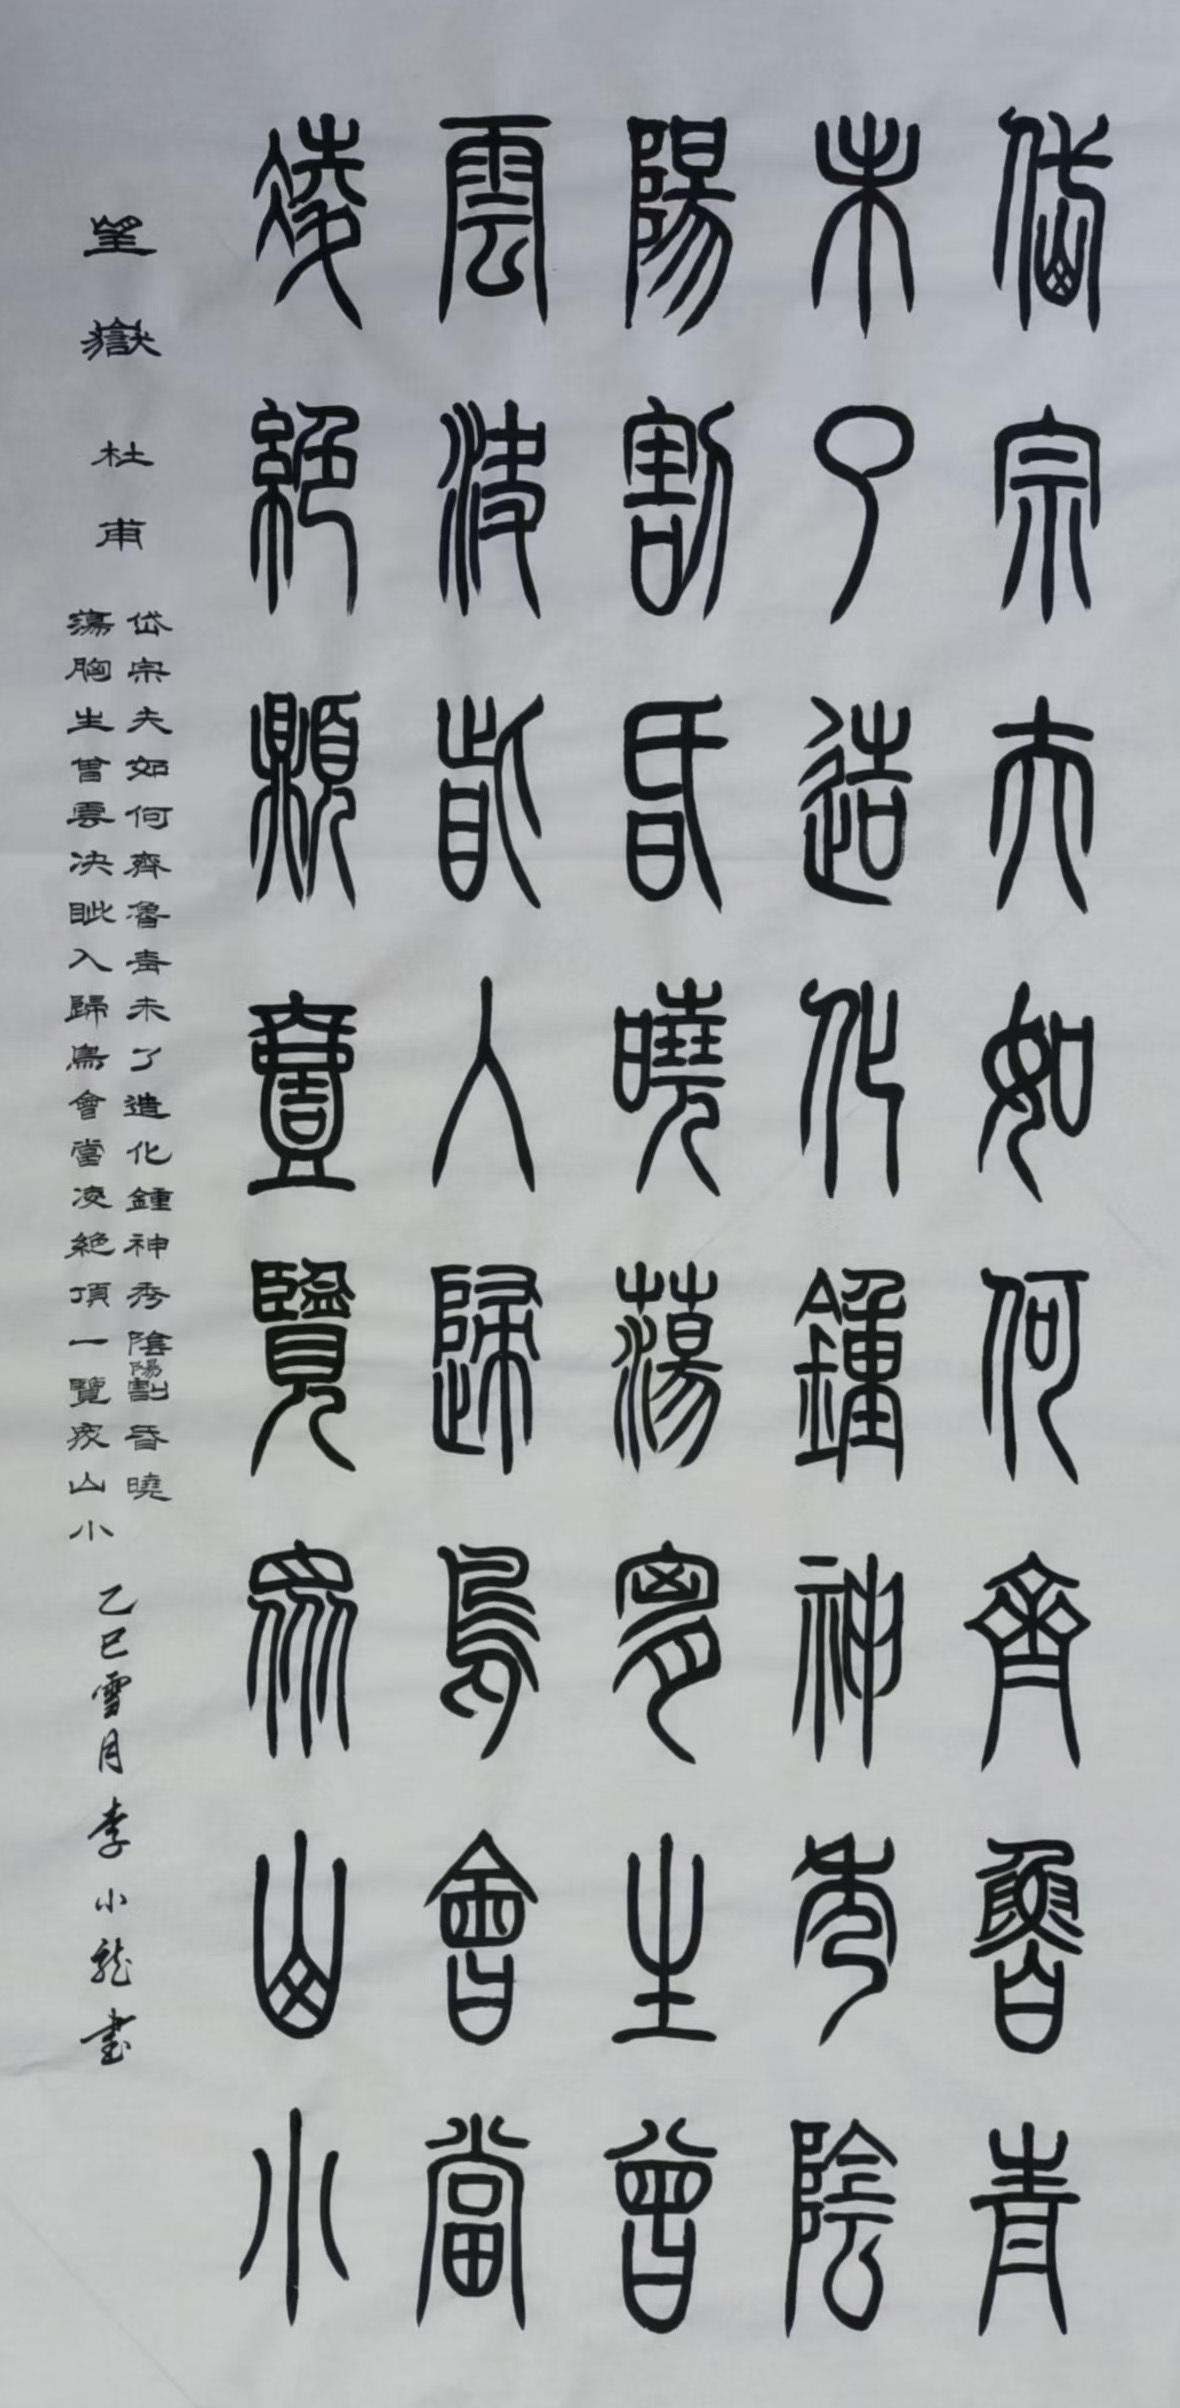 岱宗夫如何齊魯青
未了造化鍾神秀陰
陽割昏曉蕩匈生曾
雲決眥入歸鳥會當
凌絕顛壹覽眾山小
望嶽 杜甫
岱宗夫如何齊魯青未了造化鍾神秀陰陽割昏曉
蕩胸生曾雲決眦入歸鳥會當凌絕頂一覽眾山小
乙巳雪月李小龍書